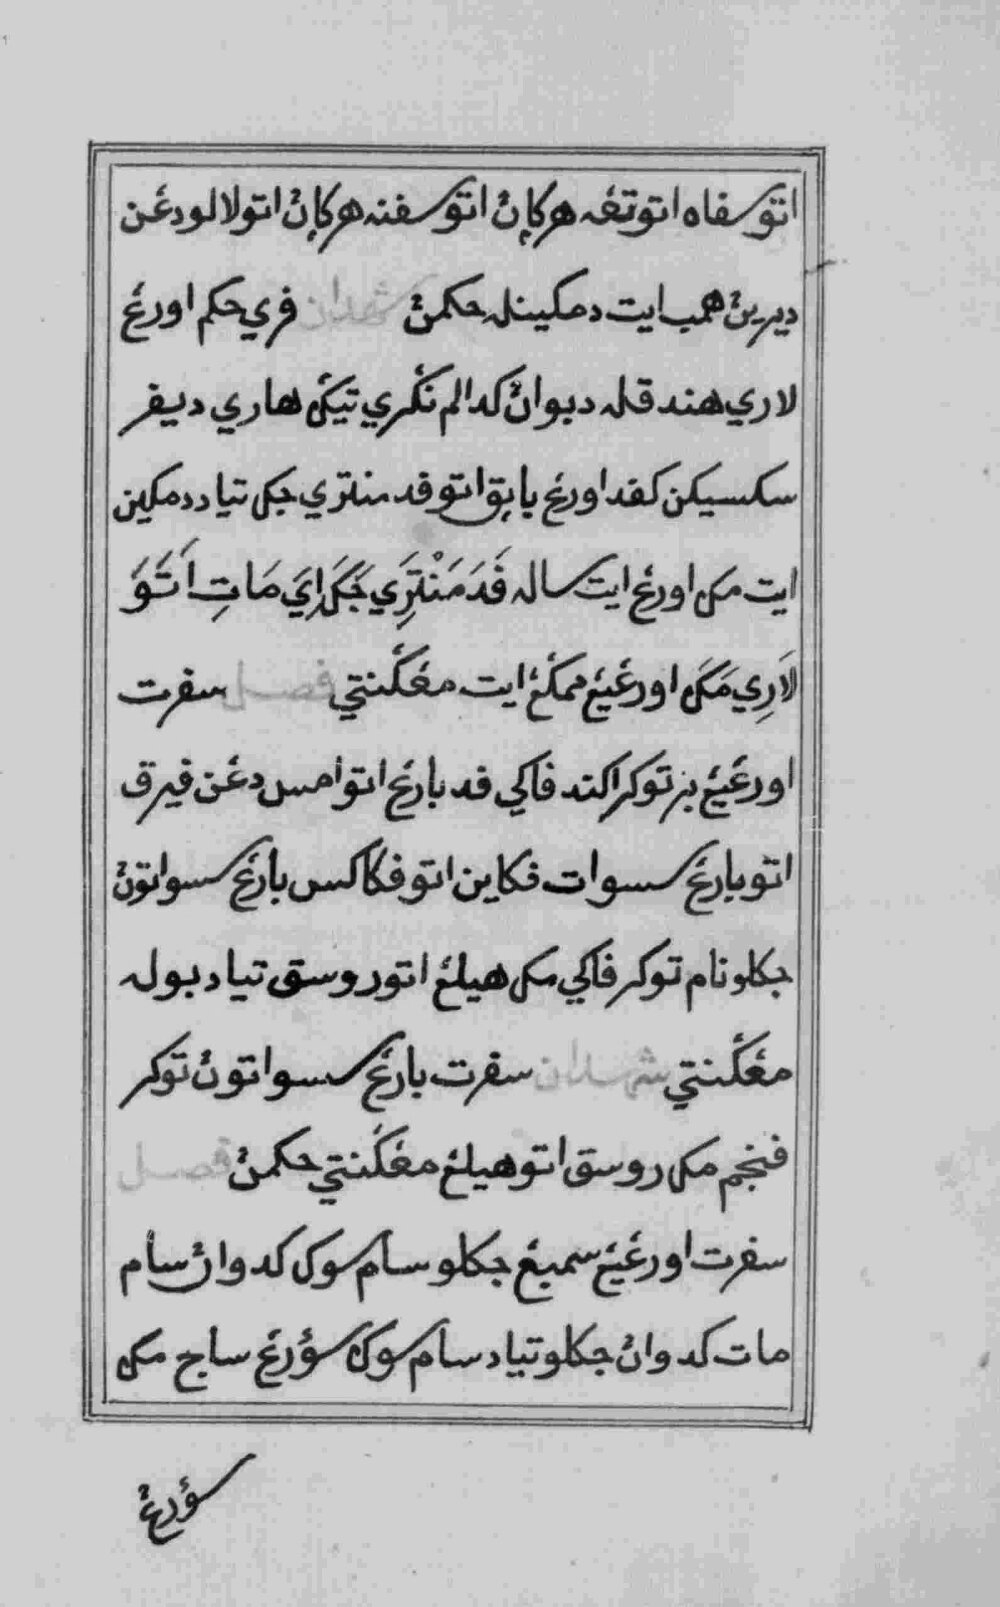 اتوسفاه اتوتڠه هركاڽ اتوسفنه هركاڽ اتولالودڠن
ديريڽ همب ايت دمكينله حكمڽ شهدان فري حكم اورڠ
لاري هندقله دبواڽ كدالم نڬري تيڬ هاري ديفر
سكسيكن كفد اورڠ باپق اتوفد منتري جك تياددمكين
ايت مك اورڠ ايت ساله فَدَ مَنْتَرِي جَكَ اِيَ مَاتِ اَتَوَ
لَارِي مَكَ اورڠيڠ ممڬڠ ايت مڠݢنتي فصل سفرت
اورڠيڠ برتوكراكند فاكي فد بارڠ اتوامس دڠن فيرق
اتوبارڠ سسوات فكاين اتوفكاكس بارڠ سسواتوڽ
جكلونام توكرفاكي مك هيلڠ اتوروسق تيادبوله
مڠݢنتي شهدان سفرت بارڠ سسواتوڽ توكر
فنجم مك روسق اتوهيلڠ مڠݢنتي حكمڽ فصل
سفرت اورڠيڠ سمبڠ جكلوسام سوك كدواڽ سام
مات كدواڽ جكلوتيادسام سوك سؤرڠ ساج مك
سؤرڠ